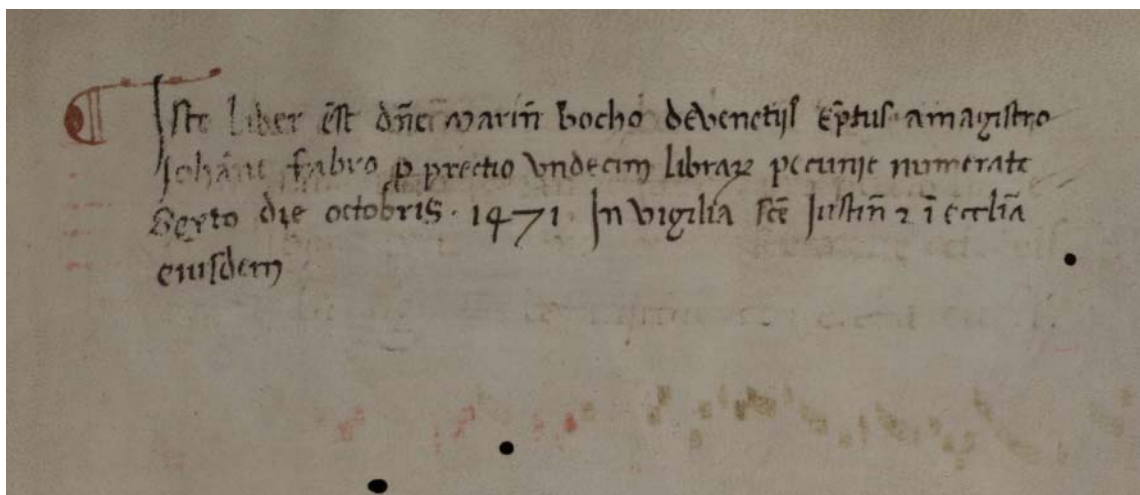 ¶ Iste liber ēst dn̄e marin̄ bocho de venetijs ēptus a magistro
Johān̄e fabro ꝑ prectio vndecim libraꝝ pecunie numerate
Sexto die octobris · 1471 · In vigilia scē Justin̄ ⁊ ī eccl̄ia
eiusdem